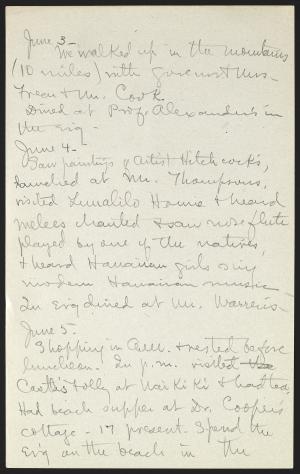 June 3-
We walked up in the mountains
(10 miles) with Governor & Mrs.
Frear & Mr. Cook.
Dined at Prof. Alexander's in
the evg -
June 4-
Saw paintings of Artist Hitchcock's,
lunched at Mr. Thompsons,
visited Lunalilo Home & heard
melees chanted & saw nose flute
played by one of the natives,
& heard Hawaiian girls sing
modern Hawaiian music -
In evg dined at Mr. Warren's -
June 5-
Shopping in a.m. & rested before
luncheon. In p.m. visited the
Castle's Holly at Wai Ki Ki & had tea,
Had beach supper at Dr. Cooper's
cottage - 17 present. Spend the
Evg on the beach in the